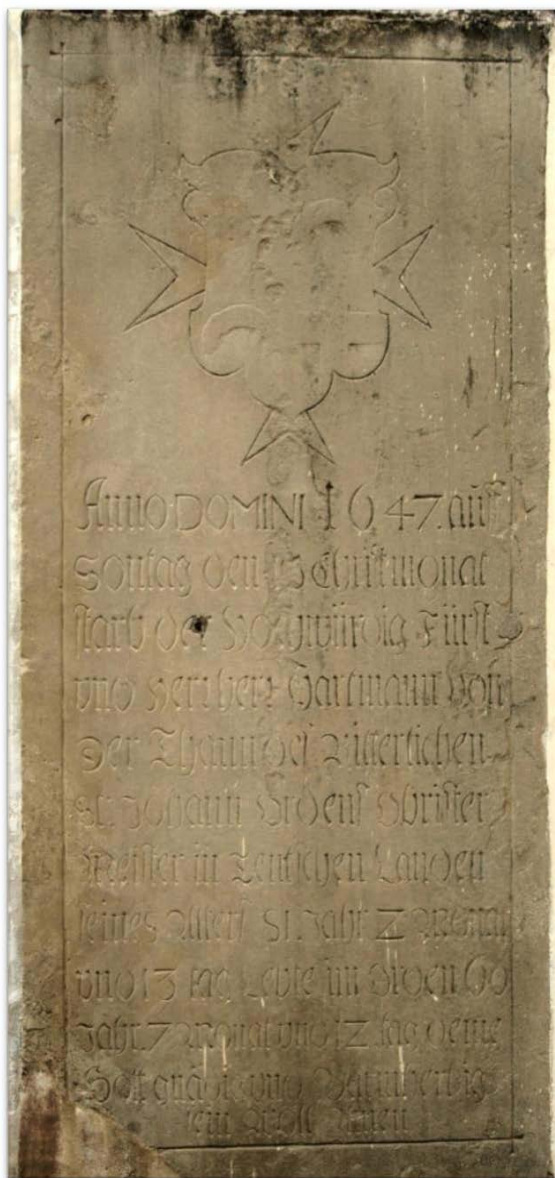 Anno DOMINI 1647. auff
Sontag den Christmonat
starb der Hochwürdig Fürst
vnd Herr Herr Hartmann Von
Der Thann des Ritterlichen
St. Johann Ordens Obrister
Meister in Teutschen Landen
seines Alters 81. Jahr Monat
vnd 13 tag Lebte im Orden 60
Jahr. 7 Monat vnd 12 tag deme
Gott gnädig vnd Barmhertzig
sein Woll Amen